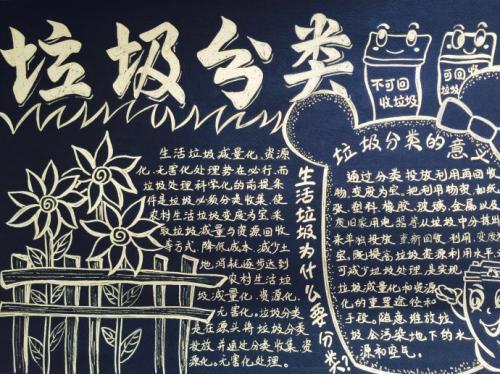 垃圾分类
不可回
收垃圾
可回收
垃圾
生活垃圾减量化、资源
化、无害化处理势在必行,而
垃圾处理科学化的前提条
件是垃圾必须分类收集,使
农村生活垃圾变废为宝,采
取垃圾减量与资源回收
等方式,降低成本,减少土
地消耗逐步达到
农村生活垃
圾减量化、资源化,
无害化。垃圾分类
是在源头将垃圾分类
投放并通过分类收集资
源化。无害化处理。
生活垃圾为什么要分类?
垃圾分类的意义
通过分类投放利用再回收
物,变废为宝,把利用物资,如纸
张、塑料、橡胶、玻璃、金属以及
废旧家用电器等从垃圾中分拣出
来单独投放,重新回收、利用、变废为
宝,既提高垃圾资源利用水平,
可减少垃圾处理,是实现
垃圾减量化和资源
化的重要途径和
手段。随意堆放垃
圾会污染地下的水
源和空气。